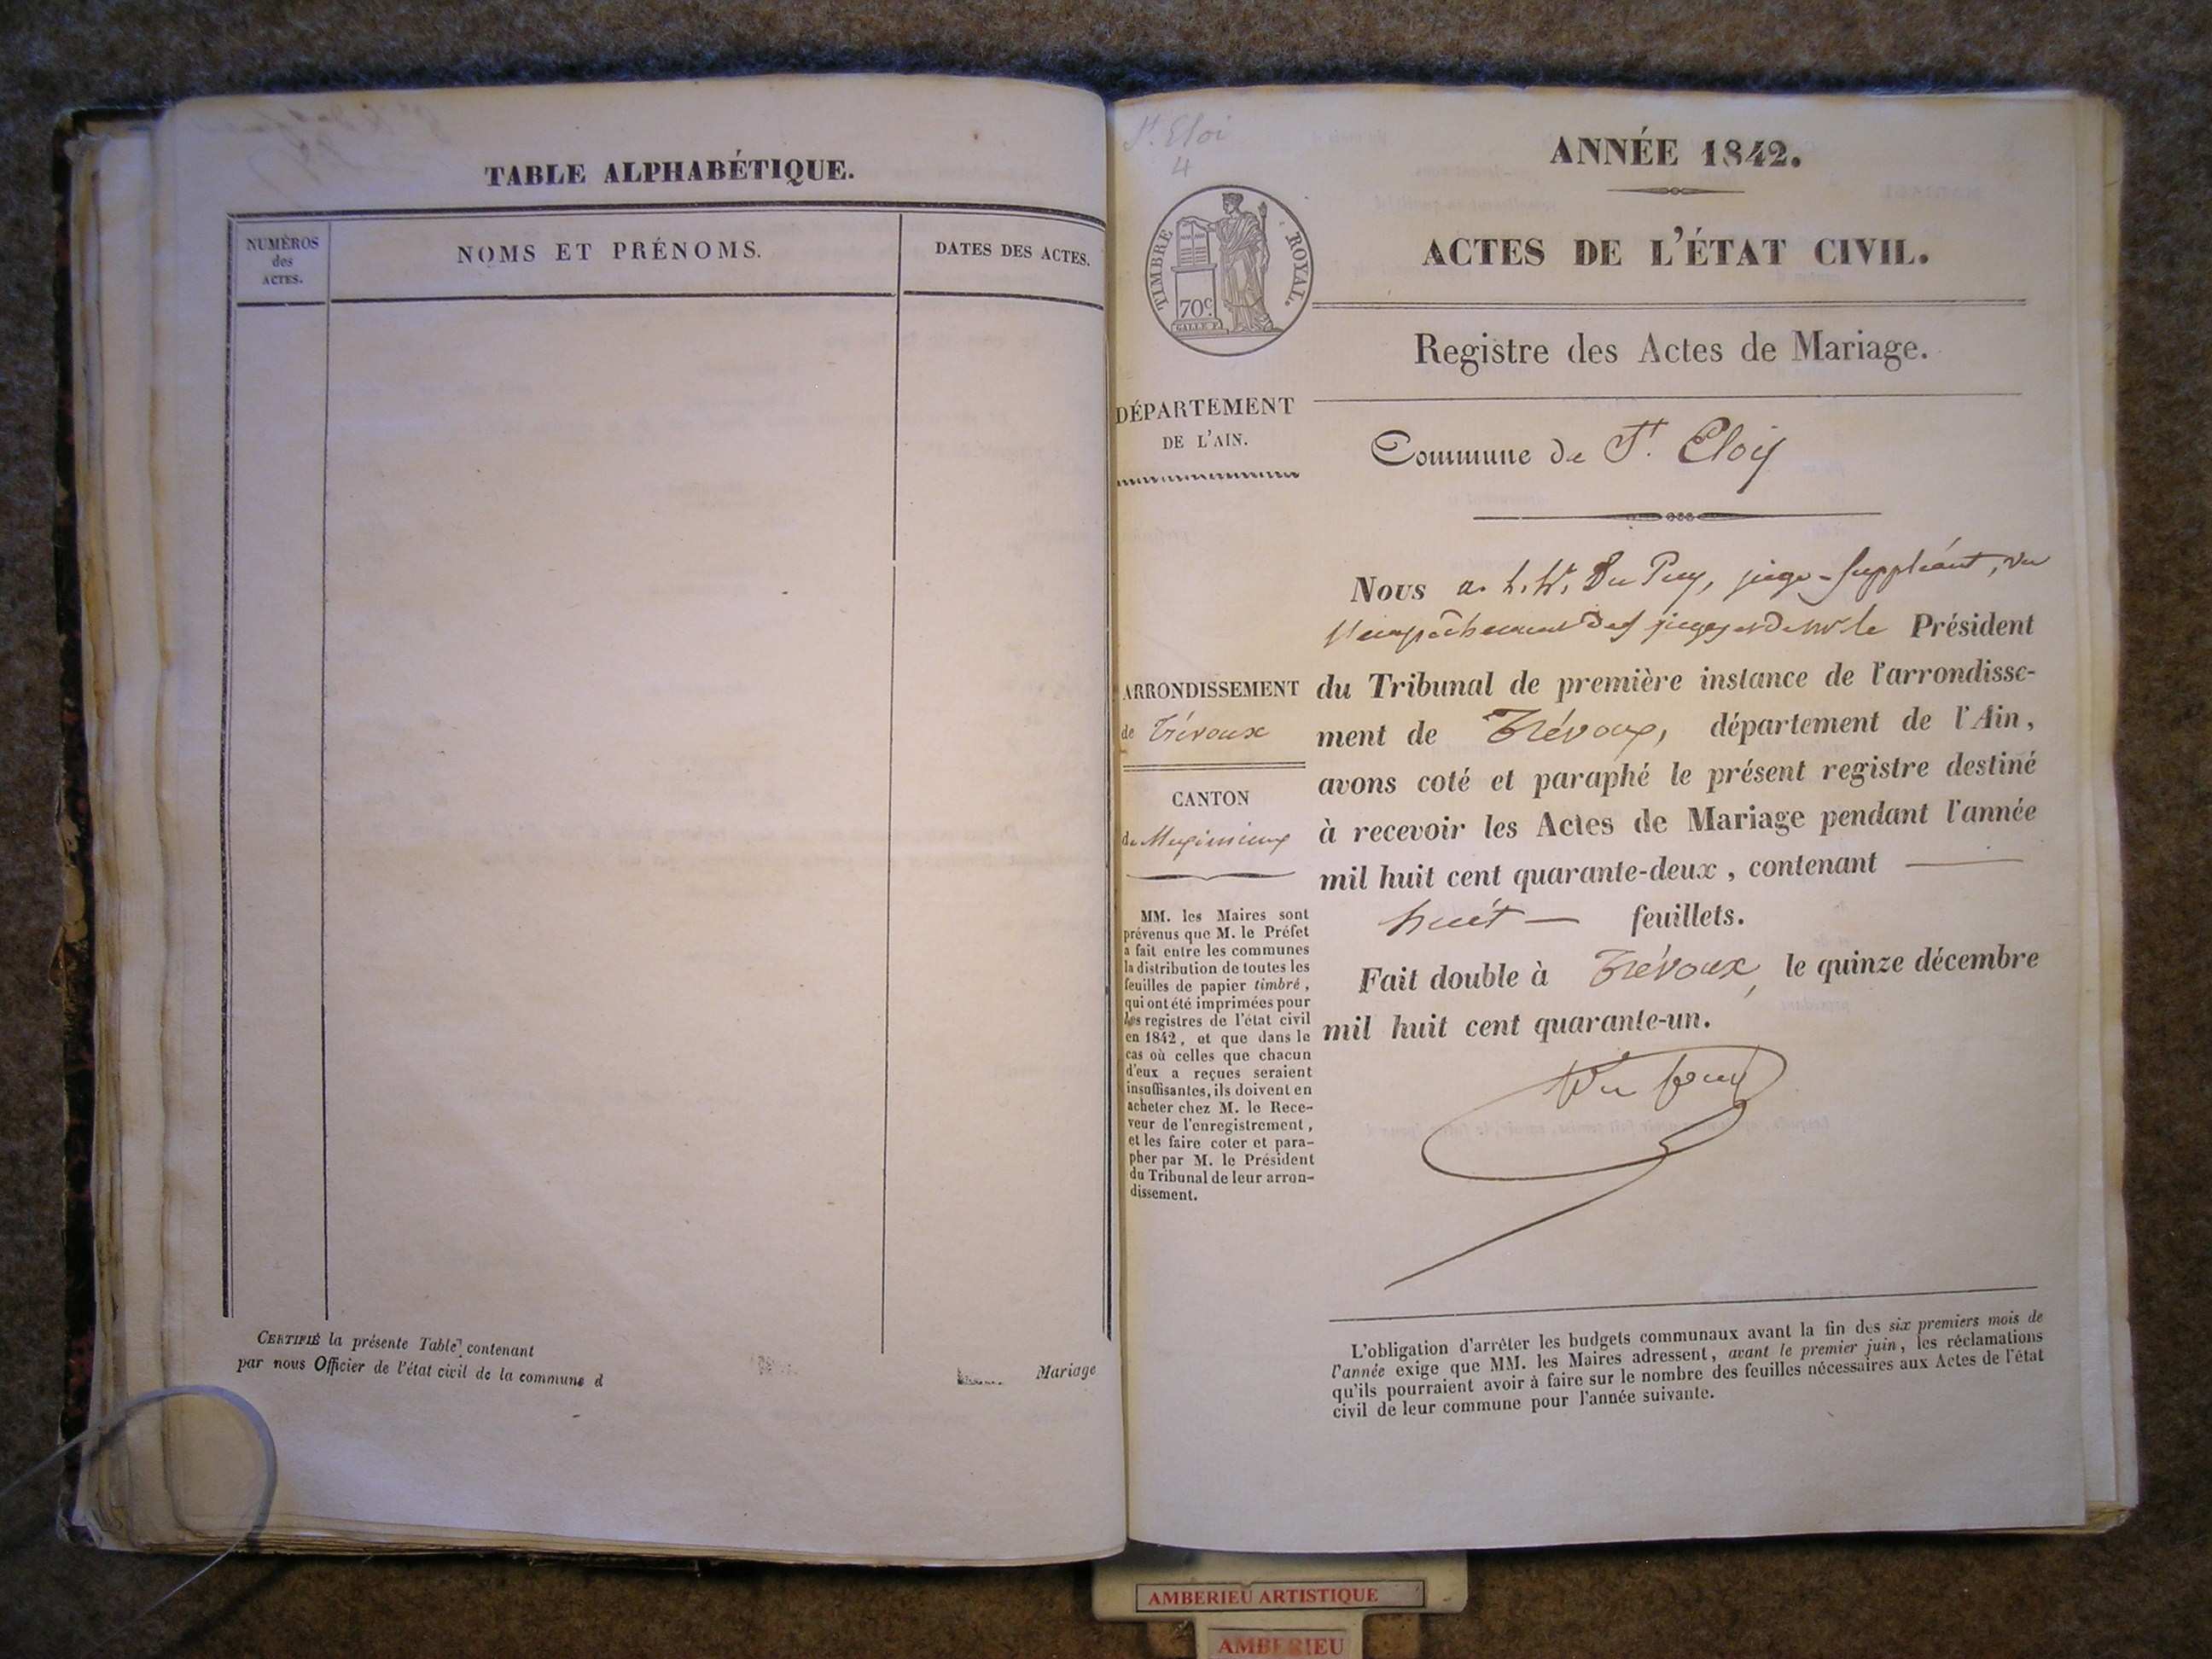 TABLE ALPHABÉTIQUE.
NUMÉROS
des
ACTES.
NOMS ET PRÉNOMS.
DATES DES ACTES.
CERTIFIÉ la présente Table contenant
par nous Officier de l'état civil de la commune d
Mariage
St. Eloi
4
TIMBRE ROYAL.
70c.
GALLE F.
DÉPARTEMENT
DE L'AIN.
ARRONDISSEMENT
de Trévoux
CANTON
de Meximieux
MM. les Maires sont
prévenus que M. le Préfet
a fait entre les communes
la distribution de toutes les
feuilles de papier timbré,
qui ont été imprimées pour
les registres de l'état civil
en 1842, et que dans le
cas où celles que chacun
d'eux a reçues seraient
insuffisantes, ils doivent en
acheter chez M. le Rece-
veur de l'enregistrement,
et les faire coter et para-
pher par M. le Président
du Tribunal de leur arron-
dissement.
ANNÉE 1842.
ACTES DE L'ÉTAT CIVIL.
Registre des Actes de Mariage.
Commune de St. Eloy
Nous Du Puy, juge-suppléant, vu
l'empêchement des juges et de mr le Président
du Tribunal de première instance de l'arrondisse-
ment de Trévoux, département de l'Ain,
avons coté et paraphé le présent registre destiné
à recevoir les Actes de Mariage pendant l'année
mil huit cent quarante-deux, contenant
huit — feuillets.
Fait double à Trévoux, le quinze décembre
mil huit cent quarante-un.
Du Puy
L'obligation d'arrêter les budgets communaux avant la fin des six premiers mois de
l'année exige que MM. les Maires adressent, avant le premier juin, les réclamations
qu'ils pourraient avoir à faire sur le nombre des feuilles nécessaires aux Actes de l'état
civil de leur commune pour l'année suivante.
AMBERIEU ARTISTIQUE
AMBERIEU